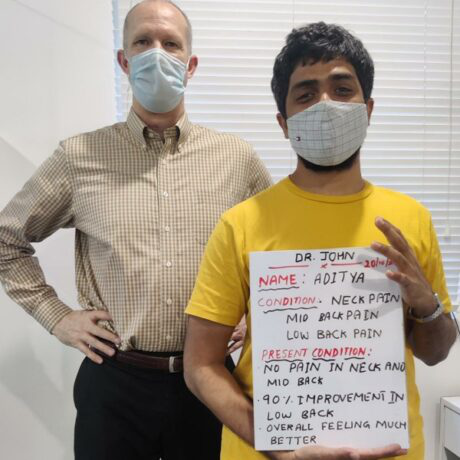 DR. JOHN
NAME: ADITYA
CONDITION. NECK PAIN
MID BACK PAIN
LOW BACK PAIN
PRESENT CONDITION:
· NO PAIN IN NECK AND
MID BACK
· 90% IMPROVEMENT IN
LOW BACK
· OVERALL FEELING MUCH
BETTER